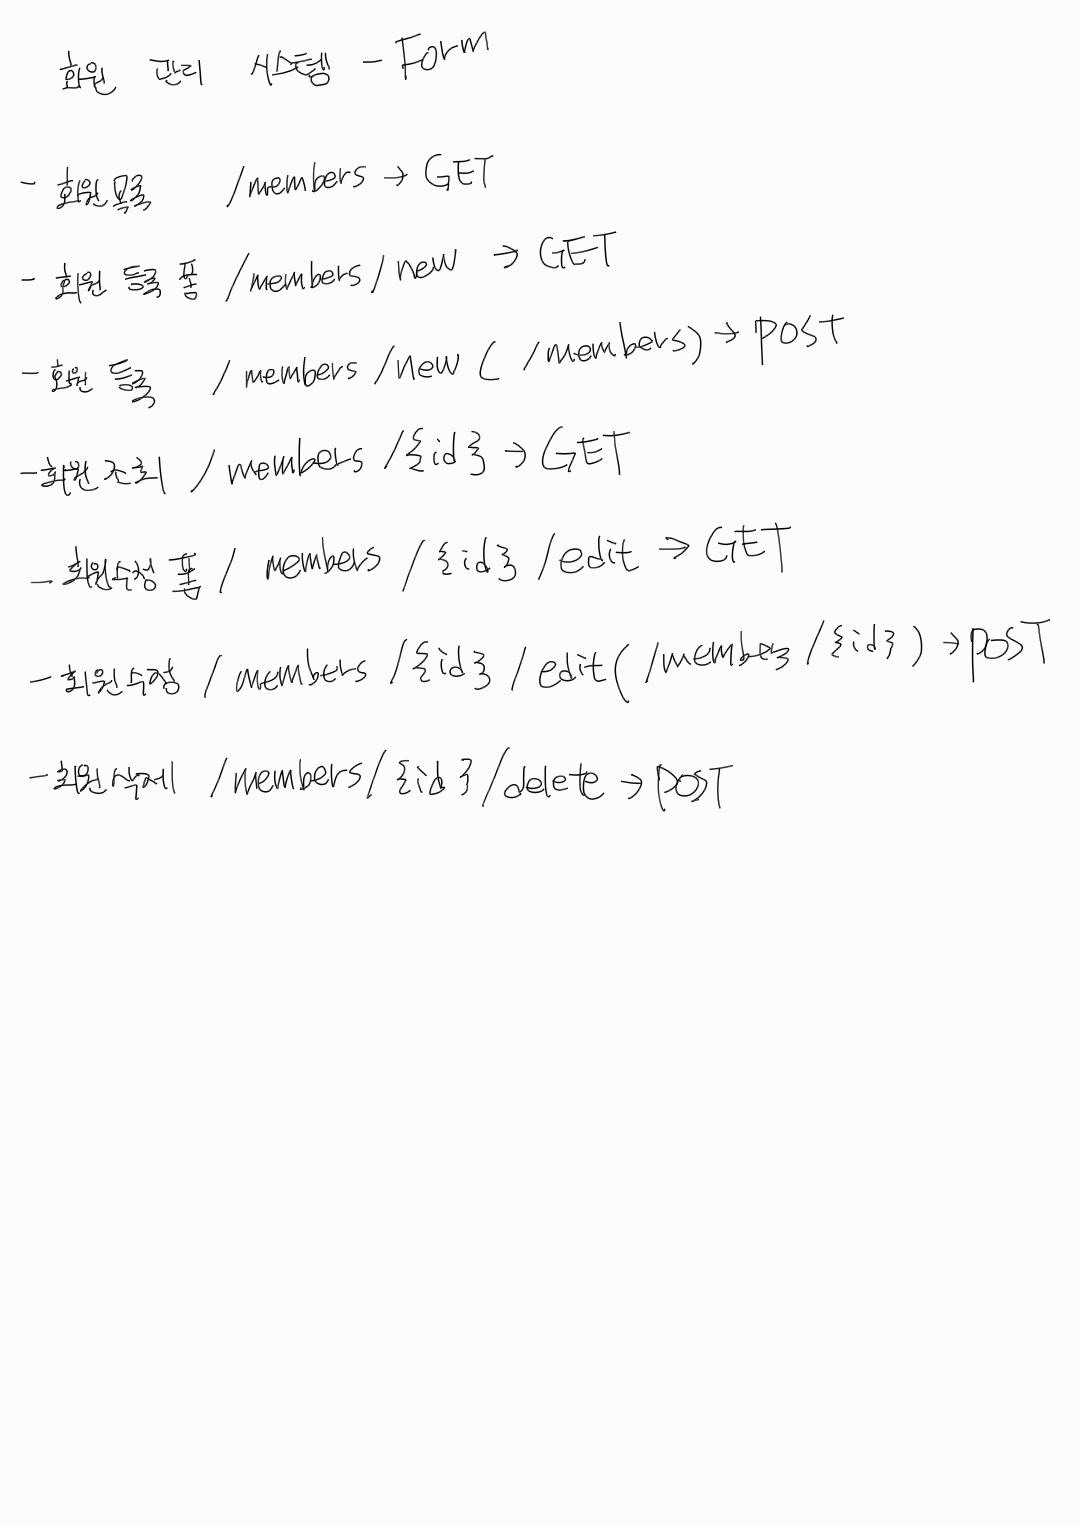 회원 관리 시스템 - Form
- 회원 목록 /members → GET
- 회원 등록 폼 /members/new → GET
- 회원 등록 /members/new (/members) → POST
- 회원 조회 /members/{id} → GET
- 회원수정 폼 /members/{id}/edit → GET
- 회원수정 /members/{id}/edit(/members/{id}) → POST
- 회원삭제 /members/{id}/delete → POST